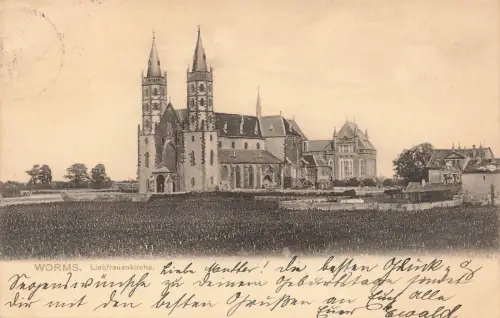 WORMS. Liebfrauenkirche.
Liebe Mutter! Die besten Glück- &
Segenswünsche zu deinem Geburtstage sendet
dir mit den besten Grüßen an Euch Alle
Euer Ewald.